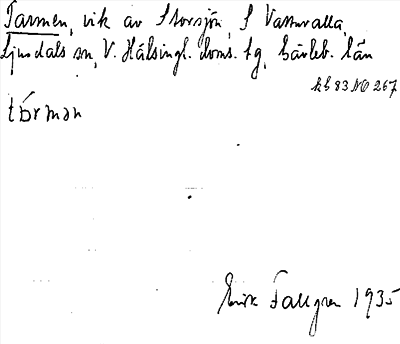 Tarmen, vik av Storsjön, S Vassvalla,
Ljusdals sn, V. Hälsingl. doms. tg, Gävleb. län
kb 83 NO 267
tórmən
Erik Fallgren 1935